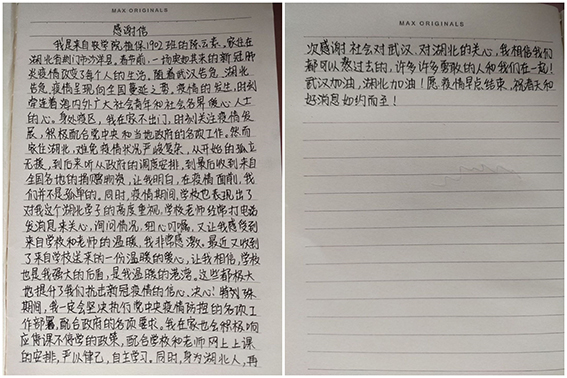 MAX ORIGINALS
感谢信
家住在
湖北省荆门市沙洋县。春节前,一场突如其来的新冠肺
炎疫情改变了每个人的生活。随着武汉告急,湖北
告急,疫情呈现向全国蔓延之势,疫情的发生,时刻
牵连着海内外广大社会青年和社会名界暖心人士
的心。身处疫区,我在家不出门,时刻关注疫情发
展,积极配合党中央和当地政府的各项工作。然而
家住湖北,难免疫情状况严峻复杂,从开始的孤立
无援,到后来听从政府的调度安排,到最后收到来自
全国各地的捐赠物资,让我明白,在疫情面前,我
们并不是孤单的。同时,疫情期间,学校也表现出了
对我这个湖北学子的高度重视,学校老师经常打电话
发消息来关心,询问情况,细心叮嘱,又让我感受到
来自学校和老师的温暖,我非常感激,最近又收到
了来自学校送来的一份温暖的爱心,让我相信,学校
也是我强大的后盾,是我温暖的港湾。这些都极大
地提升了我们抗击新冠疫情的信心、决心!特殊
期间,我一定会坚决执行党中央疫情防控的各项工
作部署,配合政府的各项要求。我在家也会积极响
应停课不停学的政策,配合学校和老师网上上课
的安排,严以律己,自主学习。同时,身为湖北人,再
MAX ORIGINALS
次感谢社会对武汉、对湖北的关心,我相信我们
都可以熬过去的,许多许多勇敢的人和我们在一起!
武汉加油,湖北加油!愿疫情早点结束,祝春天和
好消息如约而至!